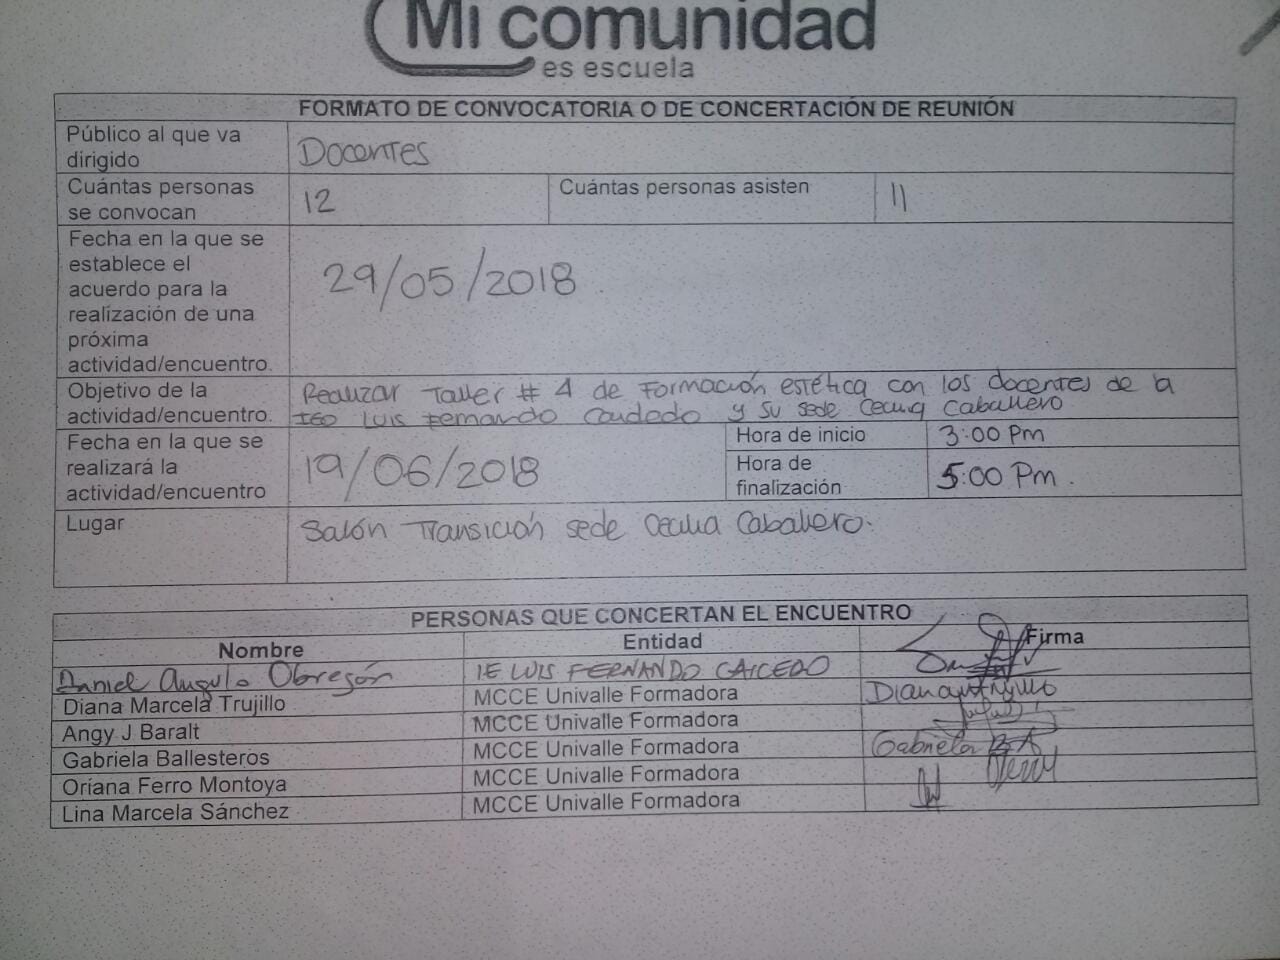 Mi comunidad
es escuela
FORMATO DE CONVOCATORIA O DE CONCERTACIÓN DE REUNIÓN
Público al que va
dirigido
Docentes
Cuántas personas
se convocan
12
Cuántas personas asisten
11
Fecha en la que se
establece el
acuerdo para la
realización de una
próxima
actividad/encuentro.
29/05/2018
Objetivo de la
actividad/encuentro.
Realizar Taller # 4 de Formación estética con los docentes de la
IEO Luis Fernando Caicedo y su sede Cecilia Caballero
Fecha en la que se
realizará la
actividad/encuentro
19/06/2018
Hora de inicio
3:00 Pm
Hora de
finalización
5:00 Pm.
Lugar
Salón Transición sede Cecilia Caballero.
PERSONAS QUE CONCERTAN EL ENCUENTRO
Nombre Entidad Firma
Daniel Angulo Obregón IE LUIS FERNANDO CAICEDO
Diana Marcela Trujillo MCCE Univalle Formadora
Angy J Baralt MCCE Univalle Formadora
Gabriela Ballesteros MCCE Univalle Formadora Gabriela
Oriana Ferro Montoya MCCE Univalle Formadora
Lina Marcela Sánchez MCCE Univalle Formadora